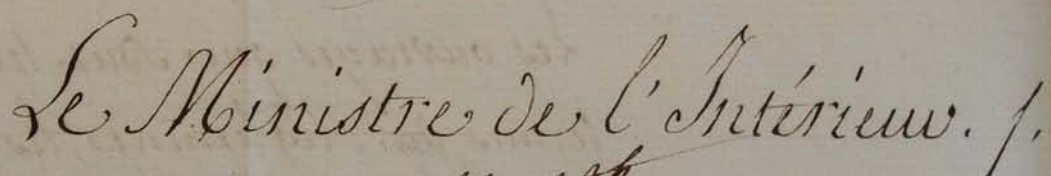 Le Ministre de l'Intérieur.